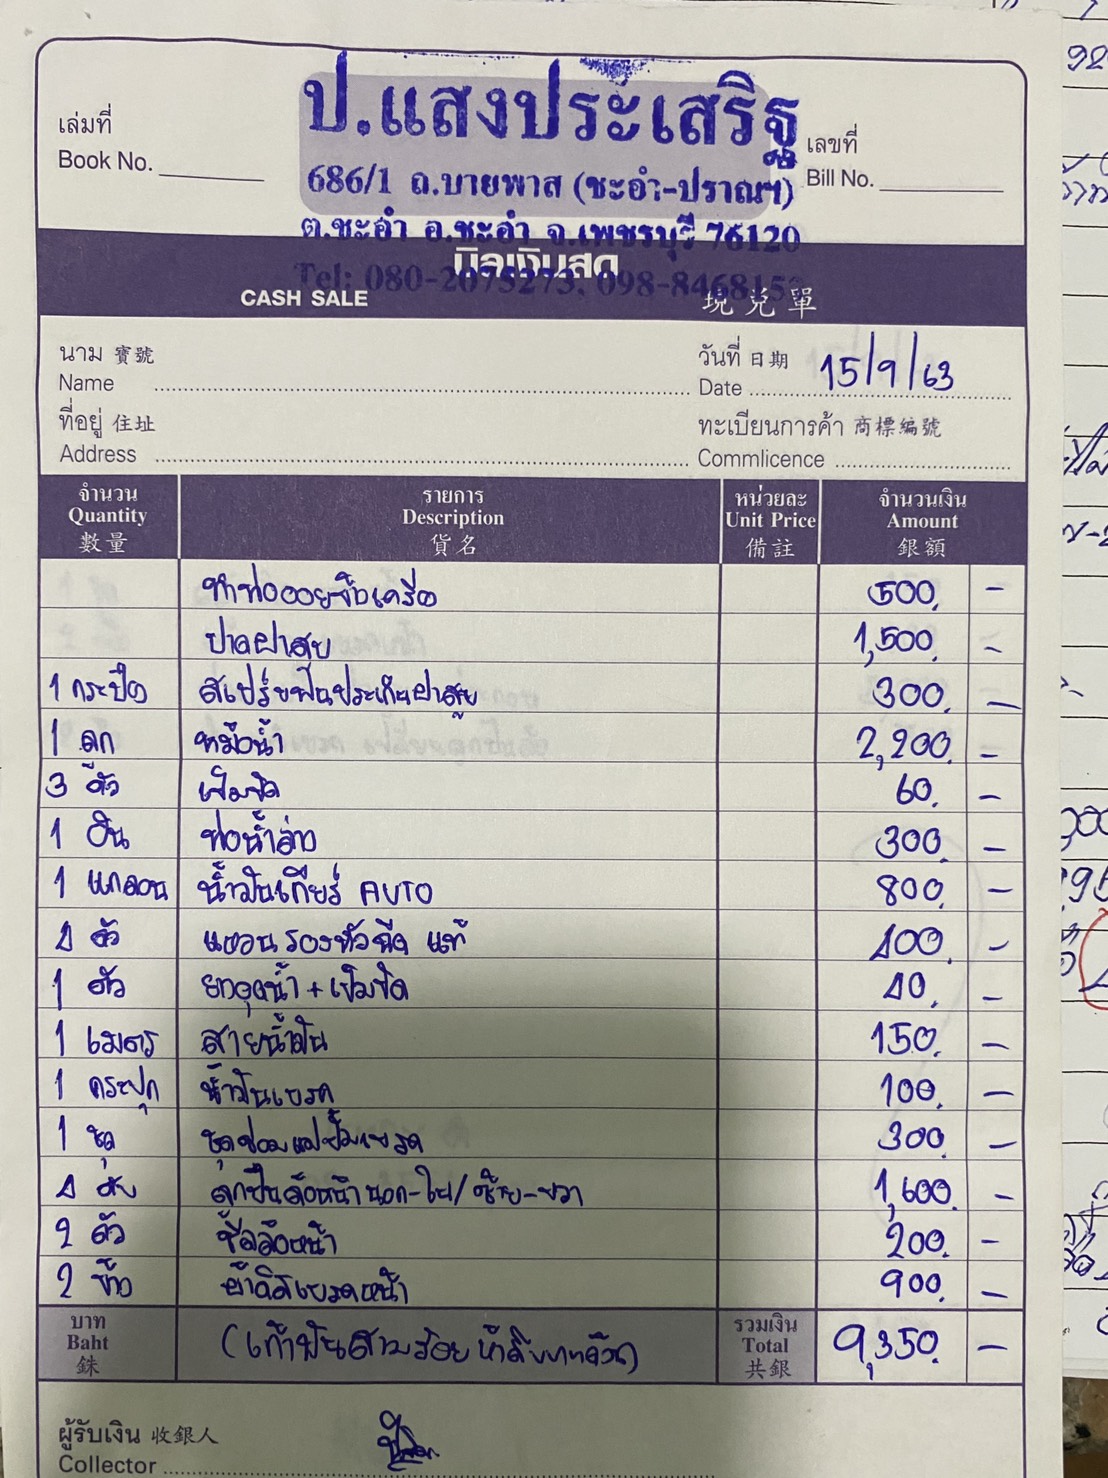 ป.แสงประเสริฐ
เล่มที่
Book No.
เลขที่
Bill No.
686/1 ถ.บายพาส (ชะอำ-ปราณฯ)
ต.ชะอำ อ.ชะอำ จ.เพชรบุรี 76120
บิลเงินสด
Tel: 080-2075273, 098-8468152
CASH SALE 現兌單
นาม 寶號
Name
วันที่ 日期
Date 15/9/63
ที่อยู่ 住址
Address
ทะเบียนการค้า 商標編號
Commlicence
จำนวน รายการ หน่วยละ จำนวนเงิน
Quantity Description Unit Price Amount
數量 貨名 備註 銀額
500.-
ปาดฝาสูบ 1,500.-
1 กระป๋อง สเปร์ยพ่นประเก็นฝาสูบ 300.-
1 ลูก หม้อน้ำ 2,200.-
3 ตัว เข็มขัด 60.-
1 อัน ท่อน้ำล่าง 300.-
1 แกลอน น้ำมันเกียร์ AUTO 800.-
4 ตัว แหวนรองหัวฉีด แท้ 400.-
1 ตัว ยางอุดน้ำ + เข็มขัด 40.-
1 เมตร สายน้ำมัน 150.-
1 กระปุก น้ำมันเบรค 100.-
1 ชุด ชุดซ่อมแม่ปั๊มเบรค 300.-
4 ลูกปืนล้อหน้านอก-ใน/ซ้าย-ขวา 1,600.-
2 ตัว ซีลล้อหน้า 200.-
2 ข้าง ผ้าดิสเบรคหน้า 900.-
บาท
Baht
銖
(เก้าพันสามร้อยห้าสิบบาทถ้วน)
รวมเงิน
Total
共銀
9,350.-
ผู้รับเงิน 收銀人
Collector